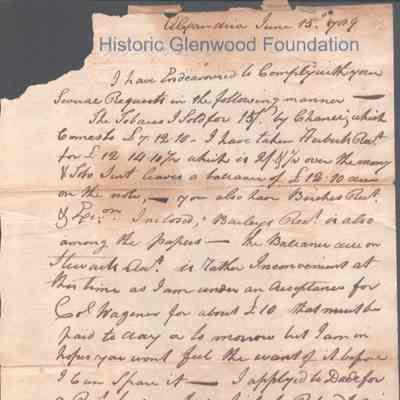 Alexandria June 15th 1789
Historic Glenwood Foundation
I have Endeavoured to Comply with your
Several Requests in the following manner —
The Tobacco I Sold for 15/. by Chance, which
Comes to £7.12.10 - I have taken Rect.
for £12.14.10½ which is over the money
& Jobs Just leaves a ballance of £12.10 due
on the note, — you also have Birches Rect.
& Inclosed, Baileys Rect. is also
among the papers — the Ballance due on
Stewarts is Rather Inconvenient at
this time as I am under an Acceptance for
Col. Wagener for about £10 that must be
paid to day or to morrow but I am in
hopes you wont feel the want of it before
I Can Spare it — I applyed to Dade for